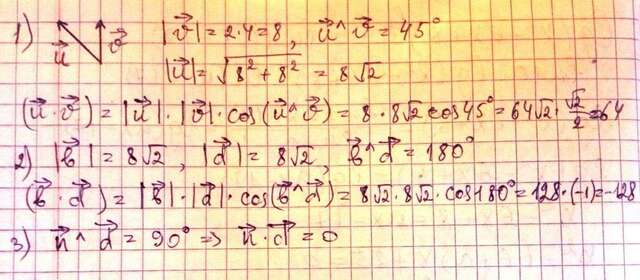 1) u⃗ v⃗ |v⃗| = 2·4 = 8, u⃗ ^ v⃗ = 45°
|u⃗| = √(8² + 8²) = 8√2
(u⃗ · v⃗) = |u⃗| · |v⃗| · cos(u⃗ ^ v⃗) = 8 · 8√2 cos 45° = 64√2 · √2/2 = 64
2) |b⃗| = 8√2, |d⃗| = 8√2, b⃗ ^ d⃗ = 180°
(b⃗ · d⃗) = |b⃗| · |d⃗| · cos(b⃗ ^ d⃗) = 8√2 · 8√2 · cos 180° = 128 · (-1) = -128
3) n⃗ ^ d⃗ = 90° => n⃗ · d⃗ = 0